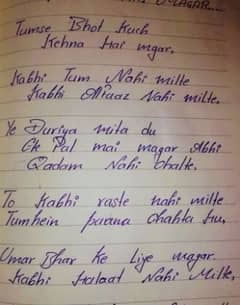 MAGAR....
Tumse Bhot Kuch
Kehna Hai mgar,
Kabhi Tum Nahi milte
Kabhi Alfaaz Nahi milte.
Ye Duriya mita du
Ek Pal mai magar Abhi
Qadam Nahi Chalte.
To Kabhi raste nahi milte
Tumhein paana Chahta Hu,
Umar Bhar Ke Liye magar
Kabhi Halaat Nahi Milte,